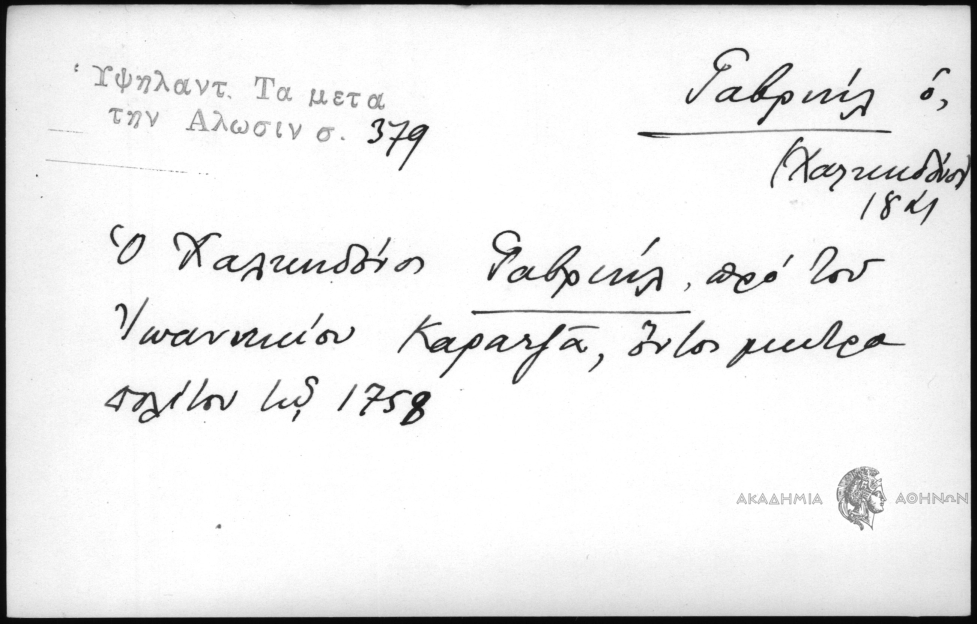 Ὑψηλαντ. Τα μετα
την Αλωσιν σ. 379
Γαβριήλ ὁ,
(Χαλκηδόνος
Ὁ Χαλκηδόνος Γαβριήλ, πρό του
Ἰωαννικίου Καρατζᾶ, ὄντος μητρο
πολίτου τῷ 1758
ΑΚΑΔΗΜΙΑ ΑΘΗΝΩΝ